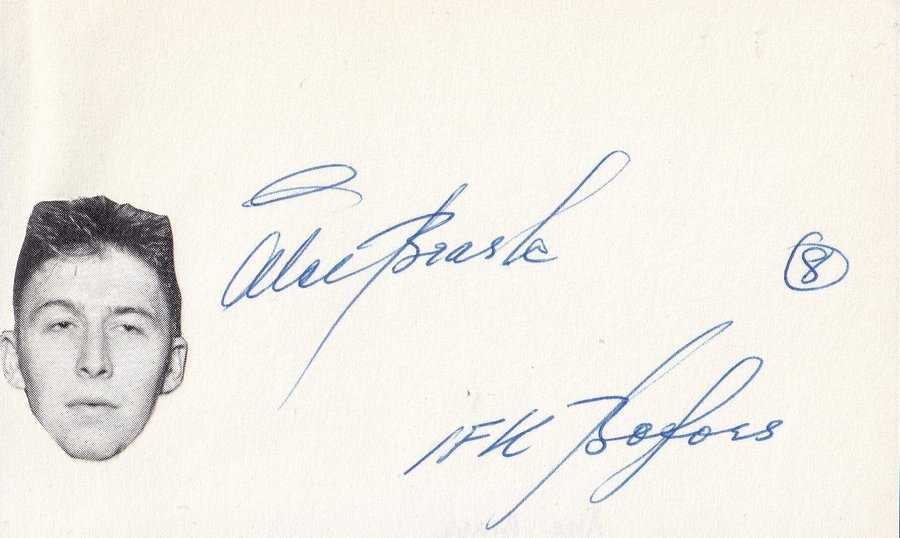 Åke Brask
8
IFK Bofors